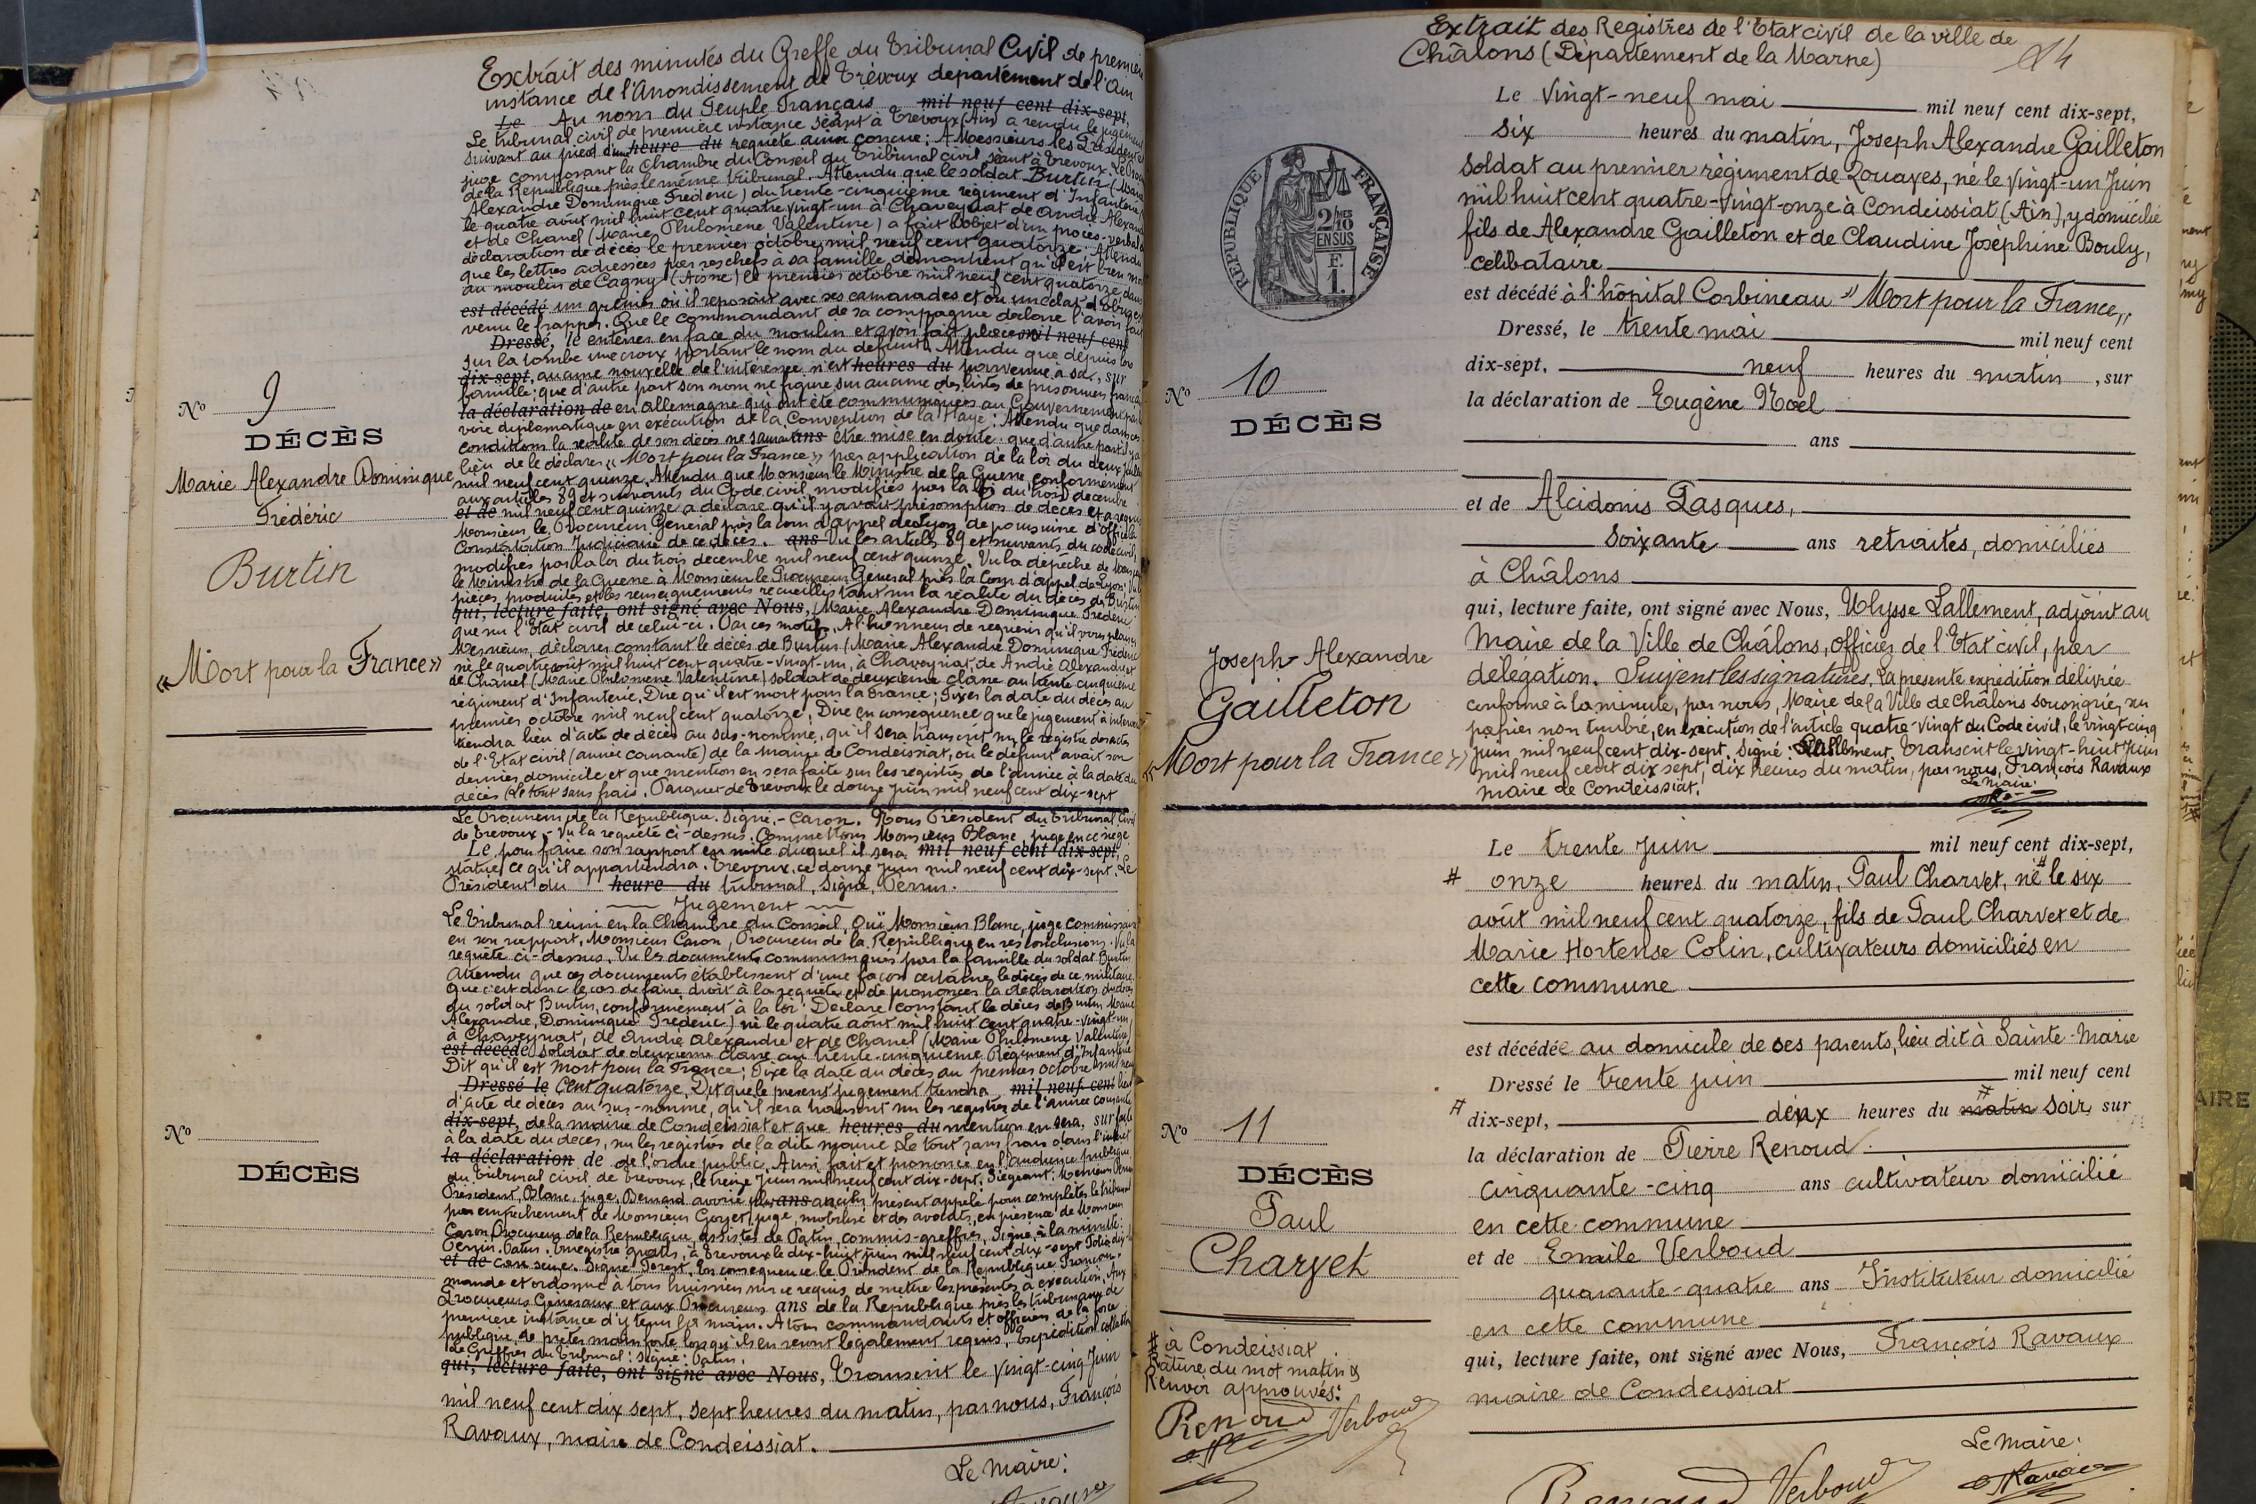 Extrait des minutes du Greffe du Tribunal Civil de première
instance de l'Arrondissement de Trévoux département de l'Ain
Le Au nom du Peuple Français mil neuf cent dix-sept,
Le tribunal civil de première instance séant à Trévoux (Ain) a rendu le jugement
suivant au pied d'une heure du requête ainsi conçue: A Messieurs les Président et
juge composant la Chambre du Conseil du Tribunal civil séant à Trévoux. Le Procureur
de la République près le même tribunal. Attendu que le soldat Burtin (Marie
Alexandre Dominique Frédéric) du trente-cinquième régiment d'Infanterie
le quatre août mil huit cent quatre vingt-un à Chaveyriat de André Alexandre
et de Chanel (Marie Philomène Valentine) a fait l'objet d'un procès-verbal de
déclaration de décès le premier octobre mil neuf cent quatorze. Attendu
que les lettres adressées par ses chefs à sa famille démontrent qu'il est bien mort
au moulin de Cagny (Aisne) le premier octobre mil neuf cent quatorze, dans
est décédé un grenier où il reposait avec ses camarades et où un éclat d'obus est
venu le frapper. Que le commandant de sa compagnie déclare l'avoir fait
Dressé, le enterrer en face du moulin et avoir fait placer mil neuf cent
sur la tombe une croix portant le nom du défunt. Attendu que depuis lors
dix-sept, aucune nouvelle de l'intéressé n'est heures du parvenue à sa, sur
famille; que d'autre part son nom ne figure sur aucune des listes de prisonniers français
la déclaration de en Allemagne qui ont été communiquées au Gouvernement par la
voie diplomatique en exécution de la Convention de la Haye; Attendu que dans ces
conditions la réalité de son décès ne saurait ans être mise en doute. que d'autre part il y a
lieu de le déclarer « Mort pour la France » par application de la loi du deux juillet
mil neuf cent quinze. Attendu que Monsieur le Ministre de la Guerre conformément
aux articles 89 et suivants du Code civil modifiés par la loi du trois décembre
et de mil neuf cent quinze a déclaré qu'il y avait présomption de décès et a requis
Monsieur le Procureur Général près la cour d'appel de Lyon de poursuivre d'office la
Constatation Judiciaire de ce décès. ans Vu les articles 89 et suivants du code civil,
modifiés par la loi du trois décembre mil neuf cent quinze. Vu la dépêche de Monsieur
le Ministre de la Guerre à Monsieur le Procureur Général près la Cour d'appel de Lyon. Vu les
pièces produites et les renseignements recueillis tant sur la réalité du décès de Burtin
qui, lecture faite, ont signé avec Nous, (Marie Alexandre Dominique Frédéric
que sur l'Etat civil de celui-ci. Par ces motifs, A l'honneur de requérir qu'il vous plaise
Messieurs, déclarer constant le décès de Burtin (Marie Alexandre Dominique Frédéric
né le quatre août mil huit cent quatre-vingt-un, à Chaveyriat, de André Alexandre et
de Chanel (Marie Philomène Valentine) soldat de deuxième classe au trente cinquième
régiment d'Infanterie. Dire qu'il est mort pour la France; Fixer la date du décès au
premier octobre mil neuf cent quatorze; Dire en conséquence que le jugement à intervenir
tiendra lieu d'acte de décès au sus-nommé, qu'il sera transcrit sur le registre des actes
de l'Etat civil (année courante) de la Mairie de Condeissiat, où le défunt avait son
dernier domicile et que mention en sera faite sur les registres de l'année à la date du
décès. Le tout sans frais. Parquet de Trévoux le douze juin mil neuf cent dix-sept
Le Procureur de la République. Signé. - Caron. Nous Président du Tribunal Civil
de Trévoux - Vu la requête ci-dessus. Commettons Monsieur Blanc, juge en ce siège
Le pour faire son rapport en suite duquel il sera mil neuf cent dix-sept,
statué ce qu'il appartiendra. Trévoux, ce douze juin mil neuf cent dix-sept. Le
Président du heure du tribunal, Signé, Perrin.
Jugement
Le Tribunal réuni en la Chambre du Conseil, Ouï Monsieur Blanc, juge commissaire
en son rapport, Monsieur Caron, Procureur de la République en ses conclusions. Vu la
requête ci-dessus. Vu les documents communiqués par la famille du soldat Burtin
Attendu que ces documents établissent d'une façon certaine le décès de ce militaire
Que c'est donc le cas de faire droit à la requête et de prononcer la déclaration du décès
du soldat Burtin, conformément à la loi. Déclare constant le décès de Burtin Marie
Alexandre, Dominique Frédéric) né le quatre août mil huit cent quatre-vingt-un,
à Chaveyriat, de André Alexandre et de Chanel (Marie Philomène Valentine)
est décédé soldat de deuxième classe au trente-cinquième Régiment d'Infanterie
Dit qu'il est Mort pour la France; Fixe la date du décès au premier octobre mil neuf
Dressé le cent quatorze, Dit que le présent jugement tiendra mil neuf cent lieu
d'acte de décès au sus-nommé, qu'il sera transcrit sur les registres de l'année courante
dix-sept, de la mairie de Condeissiat et que heures du mention en sera, sur faite
à la date du décès, sur les registres de la dite mairie Le tout sans frais dans l'intérêt
la déclaration de de l'ordre public. Ainsi fait et prononcé en l'audience publique
du Tribunal civil de Trévoux, le treize Juin mil neuf cent dix-sept. Siégeant: Messieurs Perrin
Président, Blanc, juge, Bernard avoué plus ans ancien, présent appelé pour compléter le tribunal
par empêchement de Monsieur Goyet, juge, mobilisé et des avocats, en présence de Monsieur
Caron, Procureur de la République, assistés de Patin, commis-greffier, Signé à la minute:
Perrin. Patin. Enregistré gratis, à Trévoux le dix-huit juin mil neuf cent dix-sept Folio
et de case seize. Signé En conséquence le Président de la République Française
mande et ordonne à tous huissiers sur ce requis, de mettre les présentes à exécution. Aux
Procureurs Généraux et aux Procureurs ans de la République près les tribunaux de
première instance d'y tenir la main. A tous commandants et officiers de la force
publique, de prêter main forte lorsqu'ils en seront légalement requis. Expédition collationnée
Le Greffier du Tribunal: Signé: Patin.
qui, lecture faite, ont signé avec Nous, Transcrit le vingt-cinq Juin
mil neuf cent dix sept, sept heures du matin, par nous, François
Ravaux, maire de Condeissiat.
Le Maire:
No 9
DÉCÈS
Marie Alexandre Dominique
Frédéric
Burtin
« Mort pour la France »
No
DÉCÈS
Extrait des Registres de l'Etat civil de la ville de
Châlons (Département de la Marne)
Le vingt-neuf mai mil neuf cent dix-sept,
six heures du matin, Joseph Alexandre Gailleton
soldat au premier régiment de Zouaves, né le vingt-un Juin
mil huit cent quatre-vingt-onze à Condeissiat (Ain), y domicilié
fils de Alexandre Gailleton et de Claudine Joséphine Bouly,
célibataire
est décédé à l'hôpital Corbineau "Mort pour la France"
Dressé, le trente mai mil neuf cent
dix-sept, neuf heures du matin, sur
la déclaration de Eugène Noël
ans
et de Alcidonis Pasques,
soixante ans retraités, domiciliés
à Châlons
qui, lecture faite, ont signé avec Nous, Ulysse Lallement, adjoint au
Maire de la Ville de Châlons, officier de l'Etat civil, par
délégation. Suivent les signatures, La présente expédition délivrée
conforme à la minute, par nous, Maire de la Ville de Châlons soussigné, sur
papier non timbré, en exécution de l'article quatre-vingt du Code civil, le vingt-cinq
juin mil neuf cent dix-sept. Signé: Lallement. Transcrit le vingt-huit Juin
mil neuf cent dix sept, dix heures du matin, par nous, François Ravaux
maire de Condeissiat.
Le Maire
REPUBLIQUE FRANÇAISE
2/10 MES
EN SUS
F.
1.
No 10
DÉCÈS
Joseph Alexandre
Gailleton
« Mort pour la France »
Le trente juin mil neuf cent dix-sept,
# onze heures du matin, Paul Charvet, né # le six
août mil neuf cent quatorze, fils de Paul Charvet et de
Marie Hortense Colin, cultivateurs domiciliés en
cette commune
est décédée au domicile de ses parents, lieu dit à Sainte-Marie
Dressé le trente juin mil neuf cent
# dix-sept, deux heures du matin # soir, sur
la déclaration de Pierre Renoud
cinquante-cinq ans cultivateur domicilié
en cette commune
et de Emile Verboud
quarante-quatre ans Instituteur domicilié
en cette commune
qui, lecture faite, ont signé avec Nous, François Ravaux
maire de Condeissiat
Le Maire:
Renoud Verboud Ravaux
No 11
DÉCÈS
Paul
Charvet
# à Condeissiat
Rature du mot matin &
Renvoi approuvés:
Renoud Verboud
AIRE